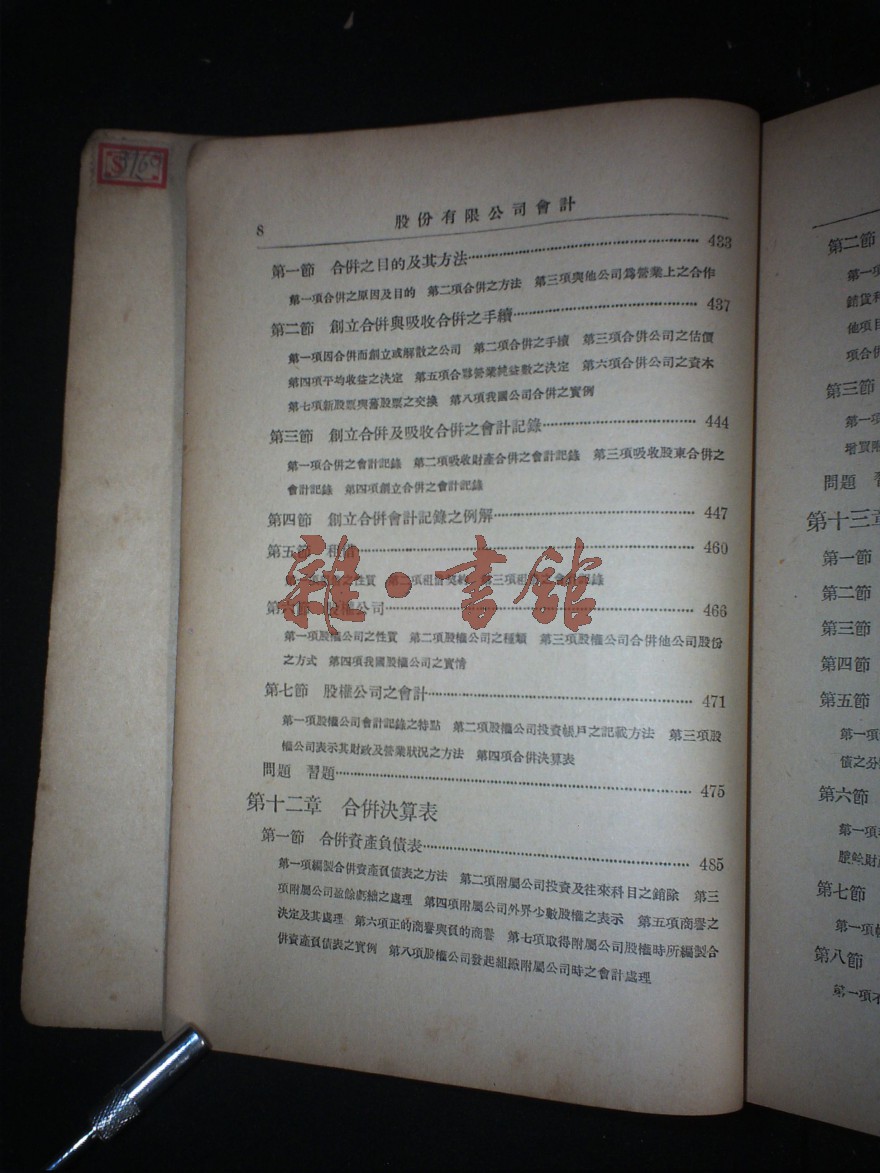 8
股份有限公司會計
第一節 合併之目的及其方法 433
第一項合併之原因及目的 第二項合併之方法 第三項與他公司爲營業上之合作
第二節 創立合併與吸收合併之手續 437
第一項因合併而創立或解散之公司 第二項合併之手續 第三項合併公司之估價
第四項平均收益之決定 第五項合夥營業純益數之決定 第六項合併公司之資本
第七項新股票與舊股票之交換 第八項我國公司合併之實例
第三節 創立合併及吸收合併之會計記錄 444
第一項合併之會計記錄 第二項吸收財產合併之會計記錄 第三項吸收股東合併之
會計記錄 第四項創立合併之會計記錄
第四節 創立合併會計記錄之例解 447
第五節 租借 460
第二項租借契約 第三項租借之會計記錄
第六節 股權公司 466
第一項股權公司之性質 第二項股權公司之種類 第三項股權公司合併他公司股份
之方式 第四項我國股權公司之實情
第七節 股權公司之會計 471
第一項股權公司會計記錄之特點 第二項股權公司投資帳戶之記載方法 第三項股
權公司表示其財政及營業狀況之方法 第四項合併決算表
問題 習題 475
第十二章 合併決算表
第一節 合併資產負債表 485
第一項編製合併資產負債表之方法 第二項附屬公司投資及往來科目之銷除 第三
項附屬公司盈餘虧絀之處理 第四項附屬公司外界少數股權之表示 第五項商譽之
決定及其處理 第六項正的商譽與負的商譽 第七項取得附屬公司股權時所編製合
併資產負債表之實例 第八項股權公司發起組織附屬公司時之會計處理
雜·書館
第二節
第一項
銷貨
他項目
項合併
第三節
第一項
問題
第十三章
第一節
第二節
第三節
第四節
第五節
第一項
債之分
第六節
第一項
第七節
第一項
第八節
第一項